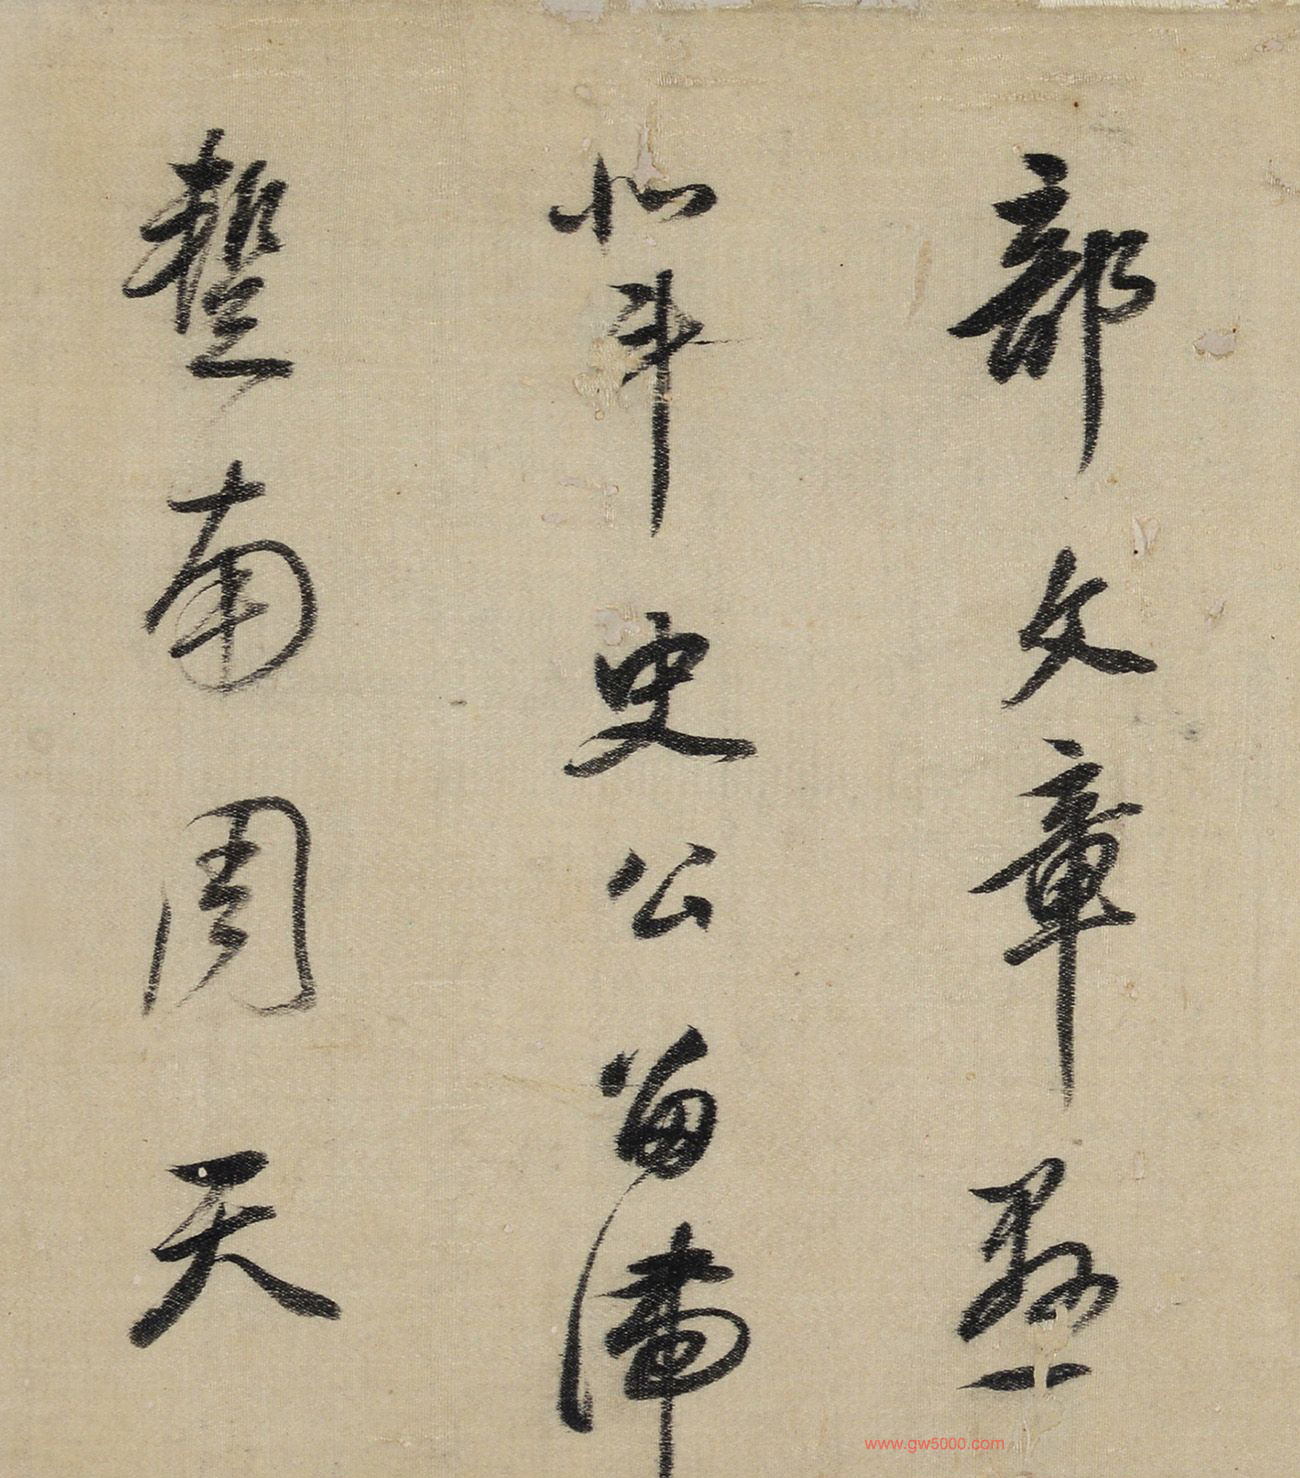 部文章懸
北斗史公留滯
蹔南周天
www.gw5000.com